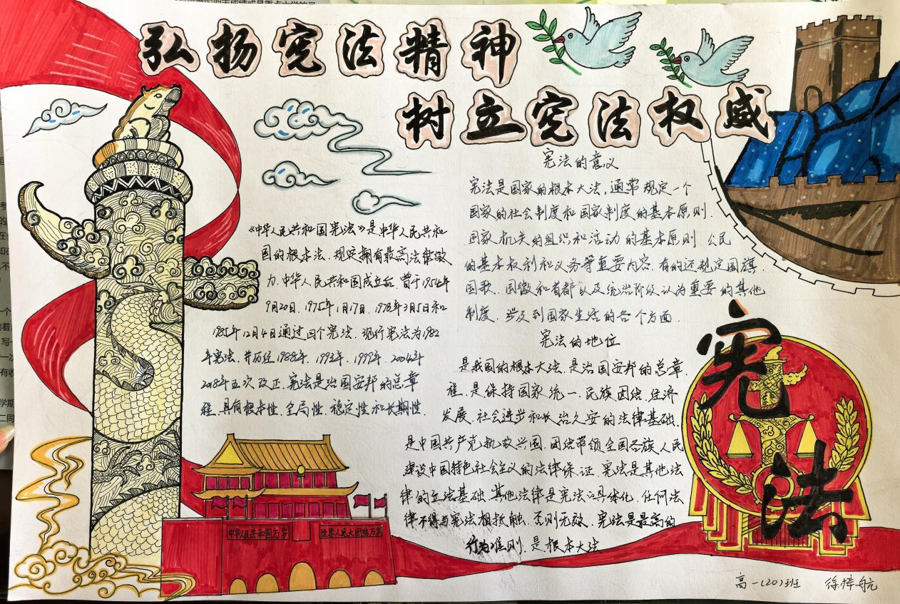 弘扬宪法精神
树立宪法权威
《中华人民共和国宪法》是中华人民共和
国的根本法,规定拥有最高法律效
力.中华人民共和国成立后,曾于1954年
9月20日、1975年1月17日、1978年3月5日和
1982年12月4日通过四个宪法,现行宪法为1982
年宪法,并历经1988年、1993年、1999年、2004年
2018年五次改正.宪法是治国安邦的总章
程,具有根本性、全局性、稳定性和长期性.
宪法的意义
宪法是国家的根本大法,通常规定一个
国家的社会制度和国家制度的基本原则.
国家机关的组织和活动的基本原则,公民
的基本权利和义务等重要内容.有的还规定国旗、
国歌、国徽和首都以及统治阶级认为重要的其他
制度,涉及到国家生活的各个方面.
宪法的地位
是我国的根本大法,是治国安邦的总章
程,是保持国家统一、民族团结、经济
发展、社会进步和长治久安的法律基础.
是中国共产党执政兴国、团结带领全国各族人民
建设中国特色社会主义的法律保证.宪法是其他法
律的立法基础,其他法律是宪法的具体化,任何法
律不得与宪法相抵触,否则无效,宪法是最高的
行为准则,是根本大法
宪法
中华人民共和国万岁
世界人民大团结万岁
高一(20)班